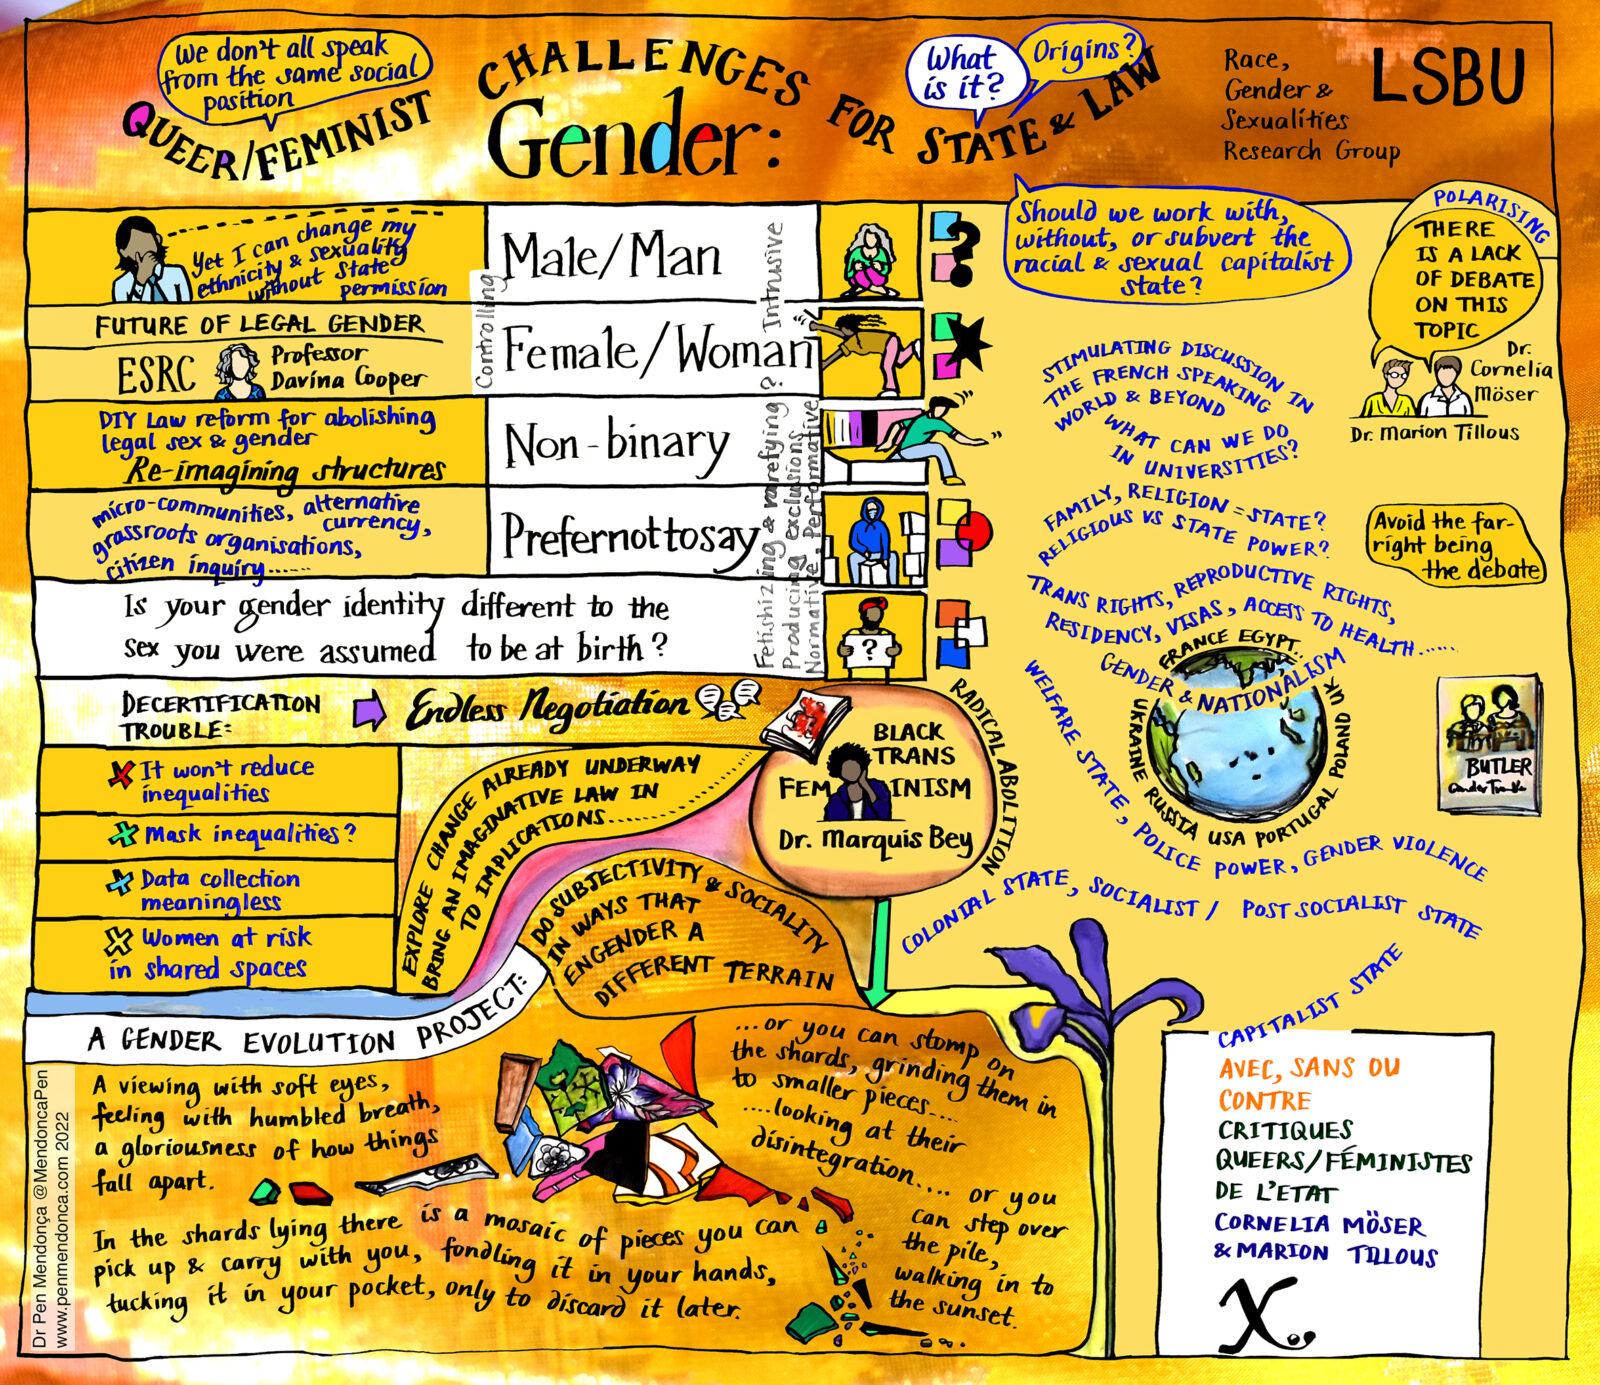 We don't all speak
from the same social
position
QUEER/FEMINIST
CHALLENGES FOR STATE & LAW
Gender:
What
is it?
Origins?
Race,
Gender &
Sexualities
Research Group
LSBU
Yet I can change my
ethnicity & sexuality
without State
permission
FUTURE OF LEGAL GENDER
ESRC
Professor
Davina Cooper
DIY Law reform for abolishing
legal sex & gender
Re-imagining structures
micro-communities, alternative
currency,
grassroots organisations,
citizen inquiry......
Controlling
Male/Man
Female/Woman
Non-binary
Prefernottosay
Fetishizing & rarefying? Intrusive
Producing exclusions
Normative, Performative
?
Is your gender identity different to the
sex you were assumed to be at birth?
?
Should we work with,
without, or subvert the
racial & sexual capitalist
state?
POLARISING
THERE
IS A LACK
OF DEBATE
ON THIS
TOPIC
Dr.
Cornelia
Möser
Dr. Marion Tillous
STIMULATING DISCUSSION IN
THE FRENCH SPEAKING
WORLD & BEYOND
WHAT CAN WE DO
IN UNIVERSITIES?
FAMILY, RELIGION = STATE?
RELIGIOUS VS STATE POWER?
Avoid the far-
right being
the debate
TRANS RIGHTS, REPRODUCTIVE RIGHTS,
RESIDENCY, VISAS, ACCESS TO HEALTH......
FRANCE EGYPT..
GENDER & NATIONALISM
UKRAINE RUSSIA USA PORTUGAL POLAND UK
WELFARE STATE, POLICE POWER, GENDER VIOLENCE
COLONIAL STATE, SOCIALIST / POST SOCIALIST STATE
CAPITALIST STATE
BUTLER
Gender Trouble
DECERTIFICATION
TROUBLE:
Endless Negotiation
It won't reduce
inequalities
Mask inequalities?
Data collection
meaningless
Women at risk
in shared spaces
EXPLORE CHANGE ALREADY UNDERWAY
BRING AN IMAGINATIVE LAW IN
TO IMPLICATIONS.......
BLACK
TRANS
FEM INISM
Dr. Marquis Bey
RADICAL ABOLITION
DO SUBJECTIVITY & SOCIALITY
IN WAYS THAT
ENGENDER A
DIFFERENT TERRAIN
A GENDER EVOLUTION PROJECT:
A viewing with soft eyes,
feeling with humbled breath,
a gloriousness of how things
fall apart.
In the shards lying there is a mosaic of pieces you can
pick up & carry with you, fondling it in your hands,
tucking it in your pocket, only to discard it later.
...or you can stomp on
the shards, grinding them in
to smaller pieces....
....looking at their
disintegration.... or you
can step over
the pile,
walking in to
the sunset.
AVEC, SANS OU
CONTRE
CRITIQUES
QUEERS/FÉMINISTES
DE L'ETAT
CORNELIA MÖSER
& MARION TILLOUS
X.,
Dr Pen Mendonça @MendoncaPen
www.penmendonca.com 2022